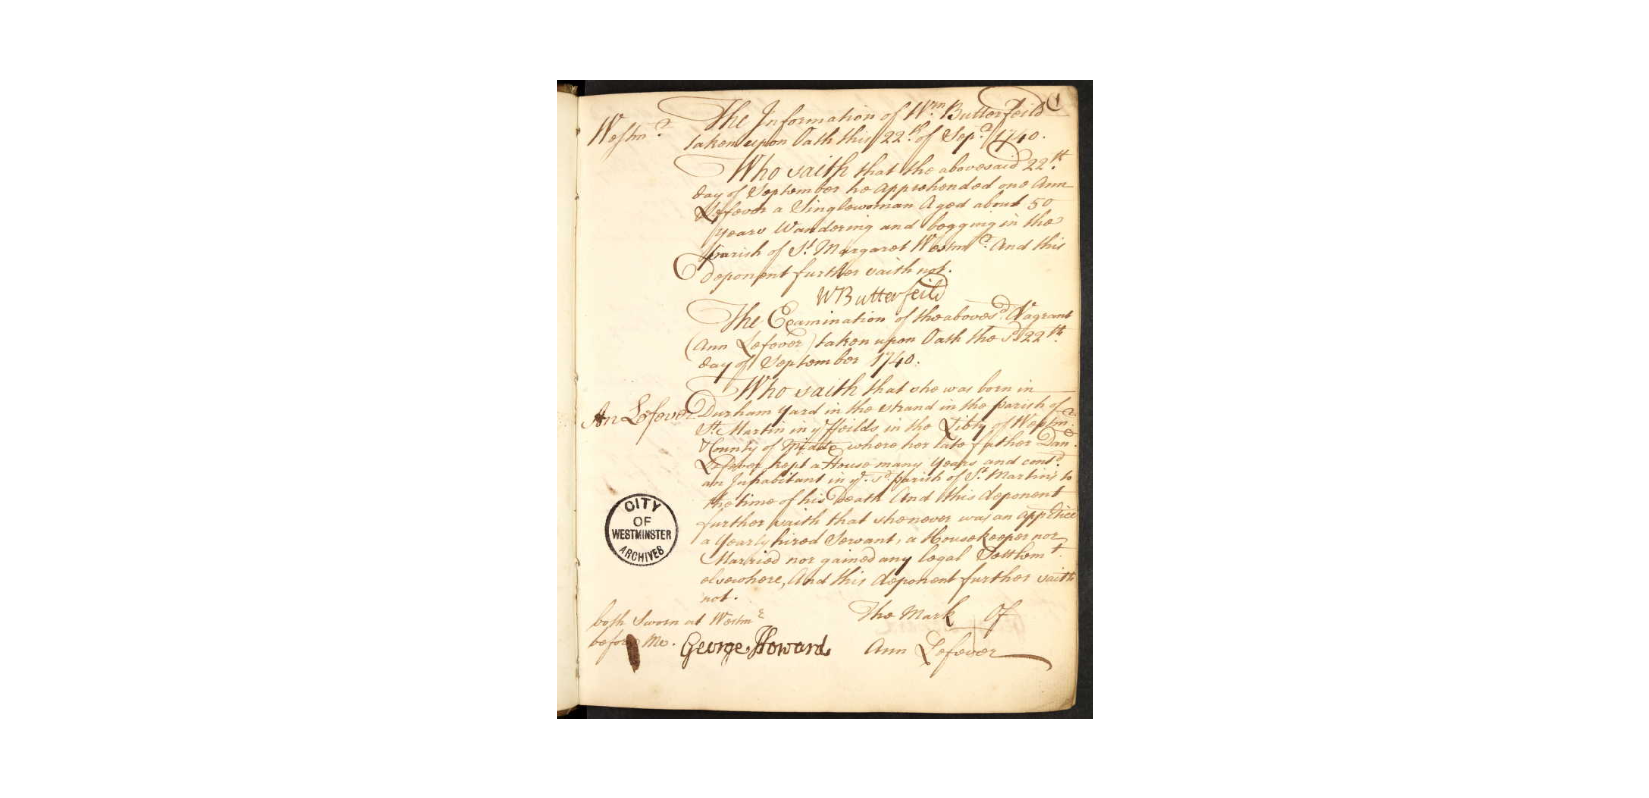 1
Westmr.
The Information of Wm. Butterfeild
taken upon Oath this 22th. of Sepr. 1740.
Who saith that the abovesaid 22th.
day of September he apprehended one Ann
Lefever a Singlewoman Aged about 50
years Wandering and begging in the
parish of St. Margaret Westmr. And this
deponent further saith not.
WButterfeild
The Examination of the abovesd. Vagrant
(Ann Lefever) taken upon Oath the sd. 22th.
day of September 1740.
Who saith that she was born in
An Lefever
Durham yard in the strand in the parish of
St. Martin in ye ffeilds in the Libty. of Westmr.
County of Middx where her late father Dan.
Lefever kept a House many years and contd.
an Inhabitant in ye. sd. parish of St. Martin's to
the time of his Death And this deponent
further saith that she never was an apprtice
a yearly hired Servant, a Housekeeper nor
Married nor gained any legal Settlemt.
elsewhere, And this deponent further saith
not.
CITY
OF
WESTMINSTER
ARCHIVES
both Sworn at Westmr
before Me. George Howard
The Mark Of
Ann Lefever